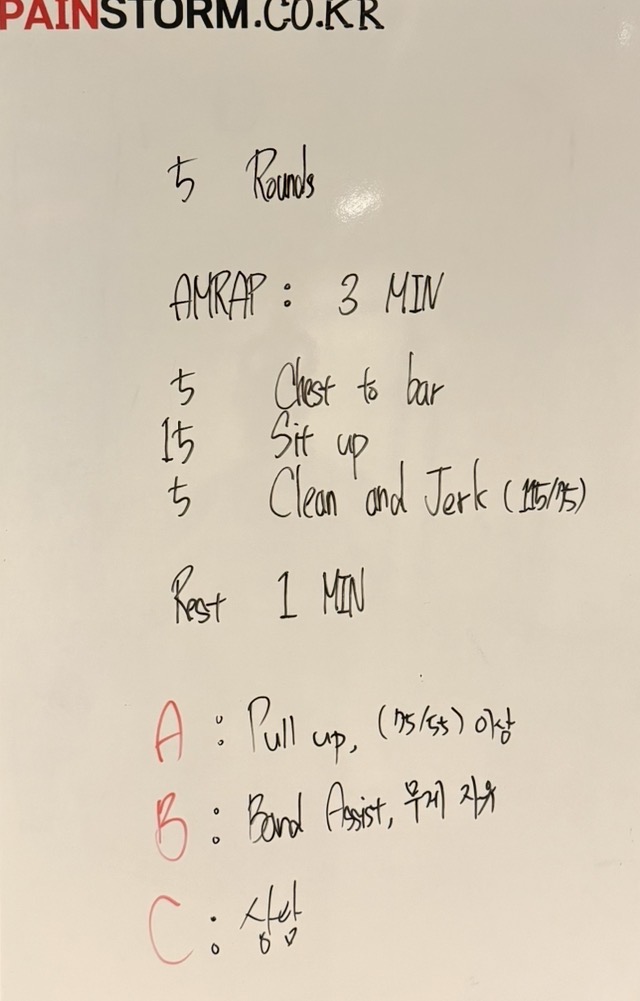 PAINSTORM.CO.KR
5 Rounds
AMRAP : 3 MIN
5 Chest to bar
15 Sit up
5 Clean and Jerk (115/75)
Rest 1 MIN
A : Pull up, (75/55) 이상
B : Band Assist, 무게 자유
C :